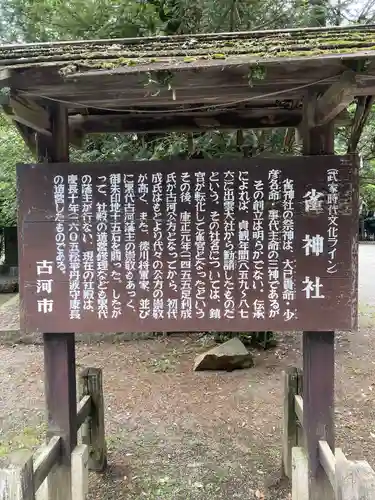 (武家時代文化ライン)
雀神社
雀神社の祭神は、大己貴命・少
彦名命・事代主命の三神であるが
その創立は明らかでない。伝承
によれば、貞観年間(八五九〜八
六)に出雲大社から勧請したものだ
という。その社名については、鎮
宮が転化して雀宮となったという
その後、康正元年(一四五五)足利成
氏が古河公方となってから、初代
成氏はもとより代々の公方の崇敬
が高く、また、徳川将軍家、並び
に累代古河藩主の崇敬もあつく、
御朱印地十五石を賜った。したが
って、社殿の普請修理なども累代
の藩主が行ない、現在の社殿は、
慶長十(一六〇五)松平丹波守康長
の造営したものである。
古河市